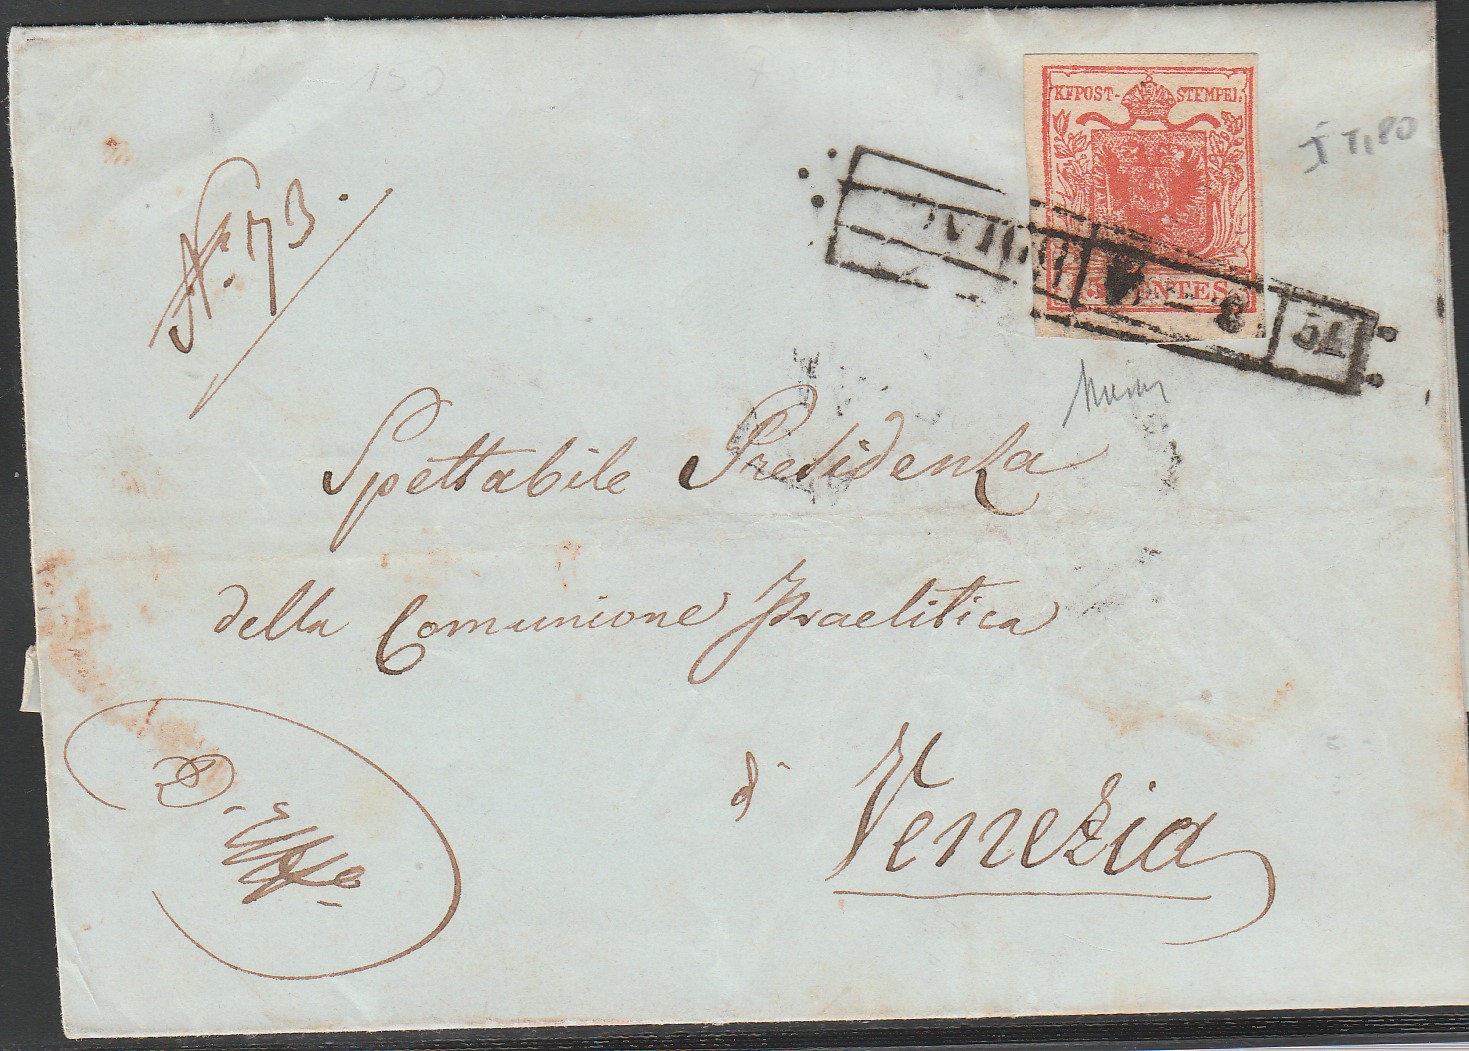 150
KKPOST-STEMPEL
I Tipo
15 CENTES.
51
No. 173.
Spettabile Presidenza
della Comunione Israelitica
di
Venezia